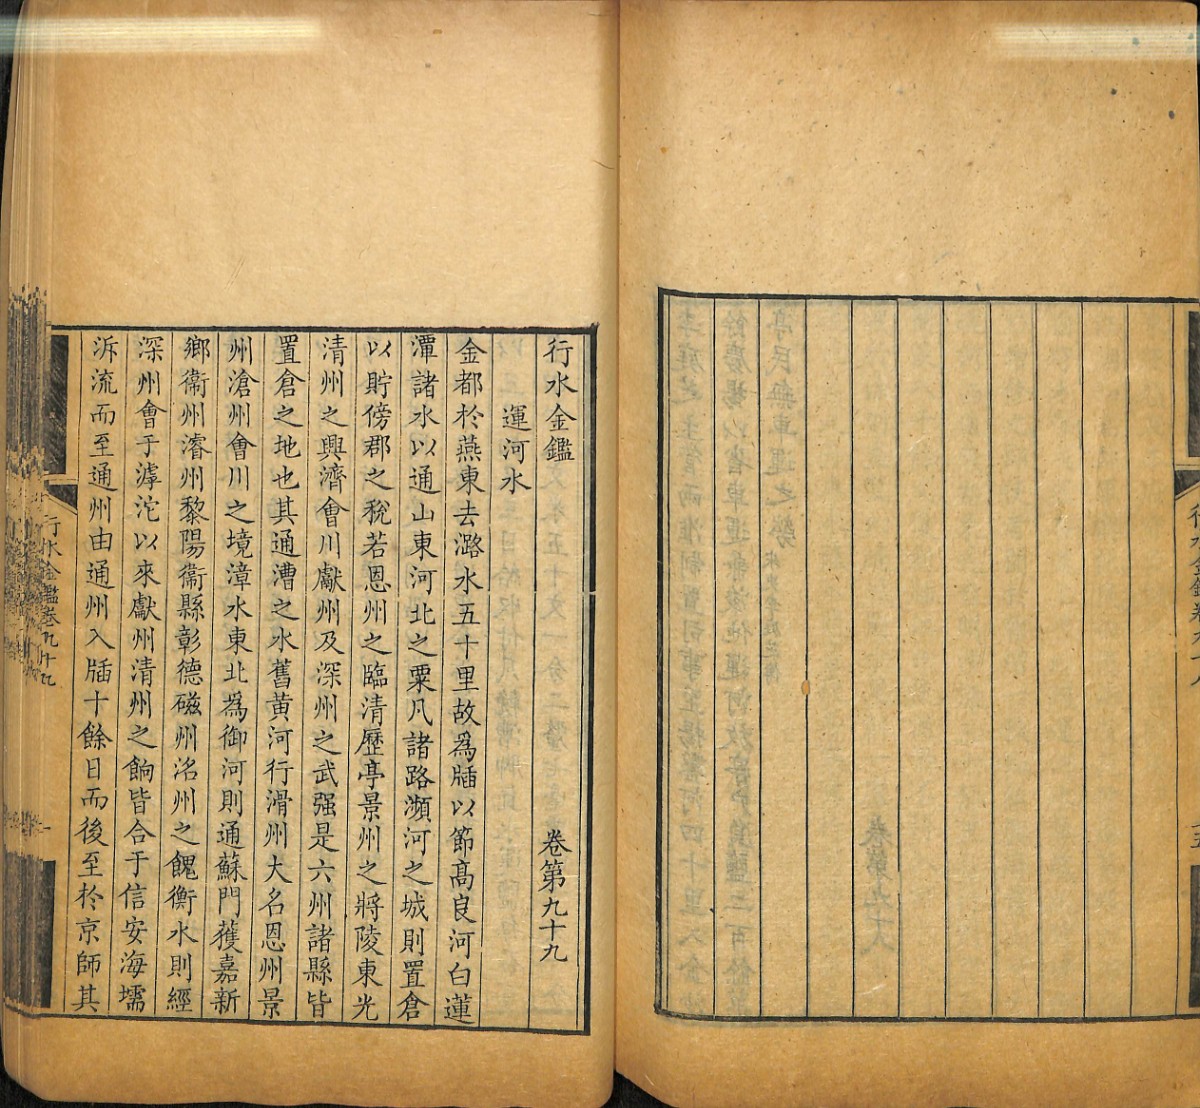 行水金鑑 卷第九十九
運河水
金都於燕東去潞水五十里故爲牐以節髙良河白蓮
潭諸水以通山東河北之粟凡諸路瀕河之城則置倉
以貯傍郡之稅若恩州之臨清歷亭景州之將陵東光
清州之興濟會川獻州及深州之武强是六州諸縣皆
置倉之地也其通漕之水舊黄河行滑州大名恩州景
州滄州會川之境漳水東北爲御河則通蘇門獲嘉新
鄉衞州濬州黎陽衞縣彰德磁州洺州之餽衡水則經
深州會于滹沱以來獻州清州之餉皆合于信安海壖
泝流而至通州由通州入牐十餘日而後至於京師其
行水金鑑卷九十九